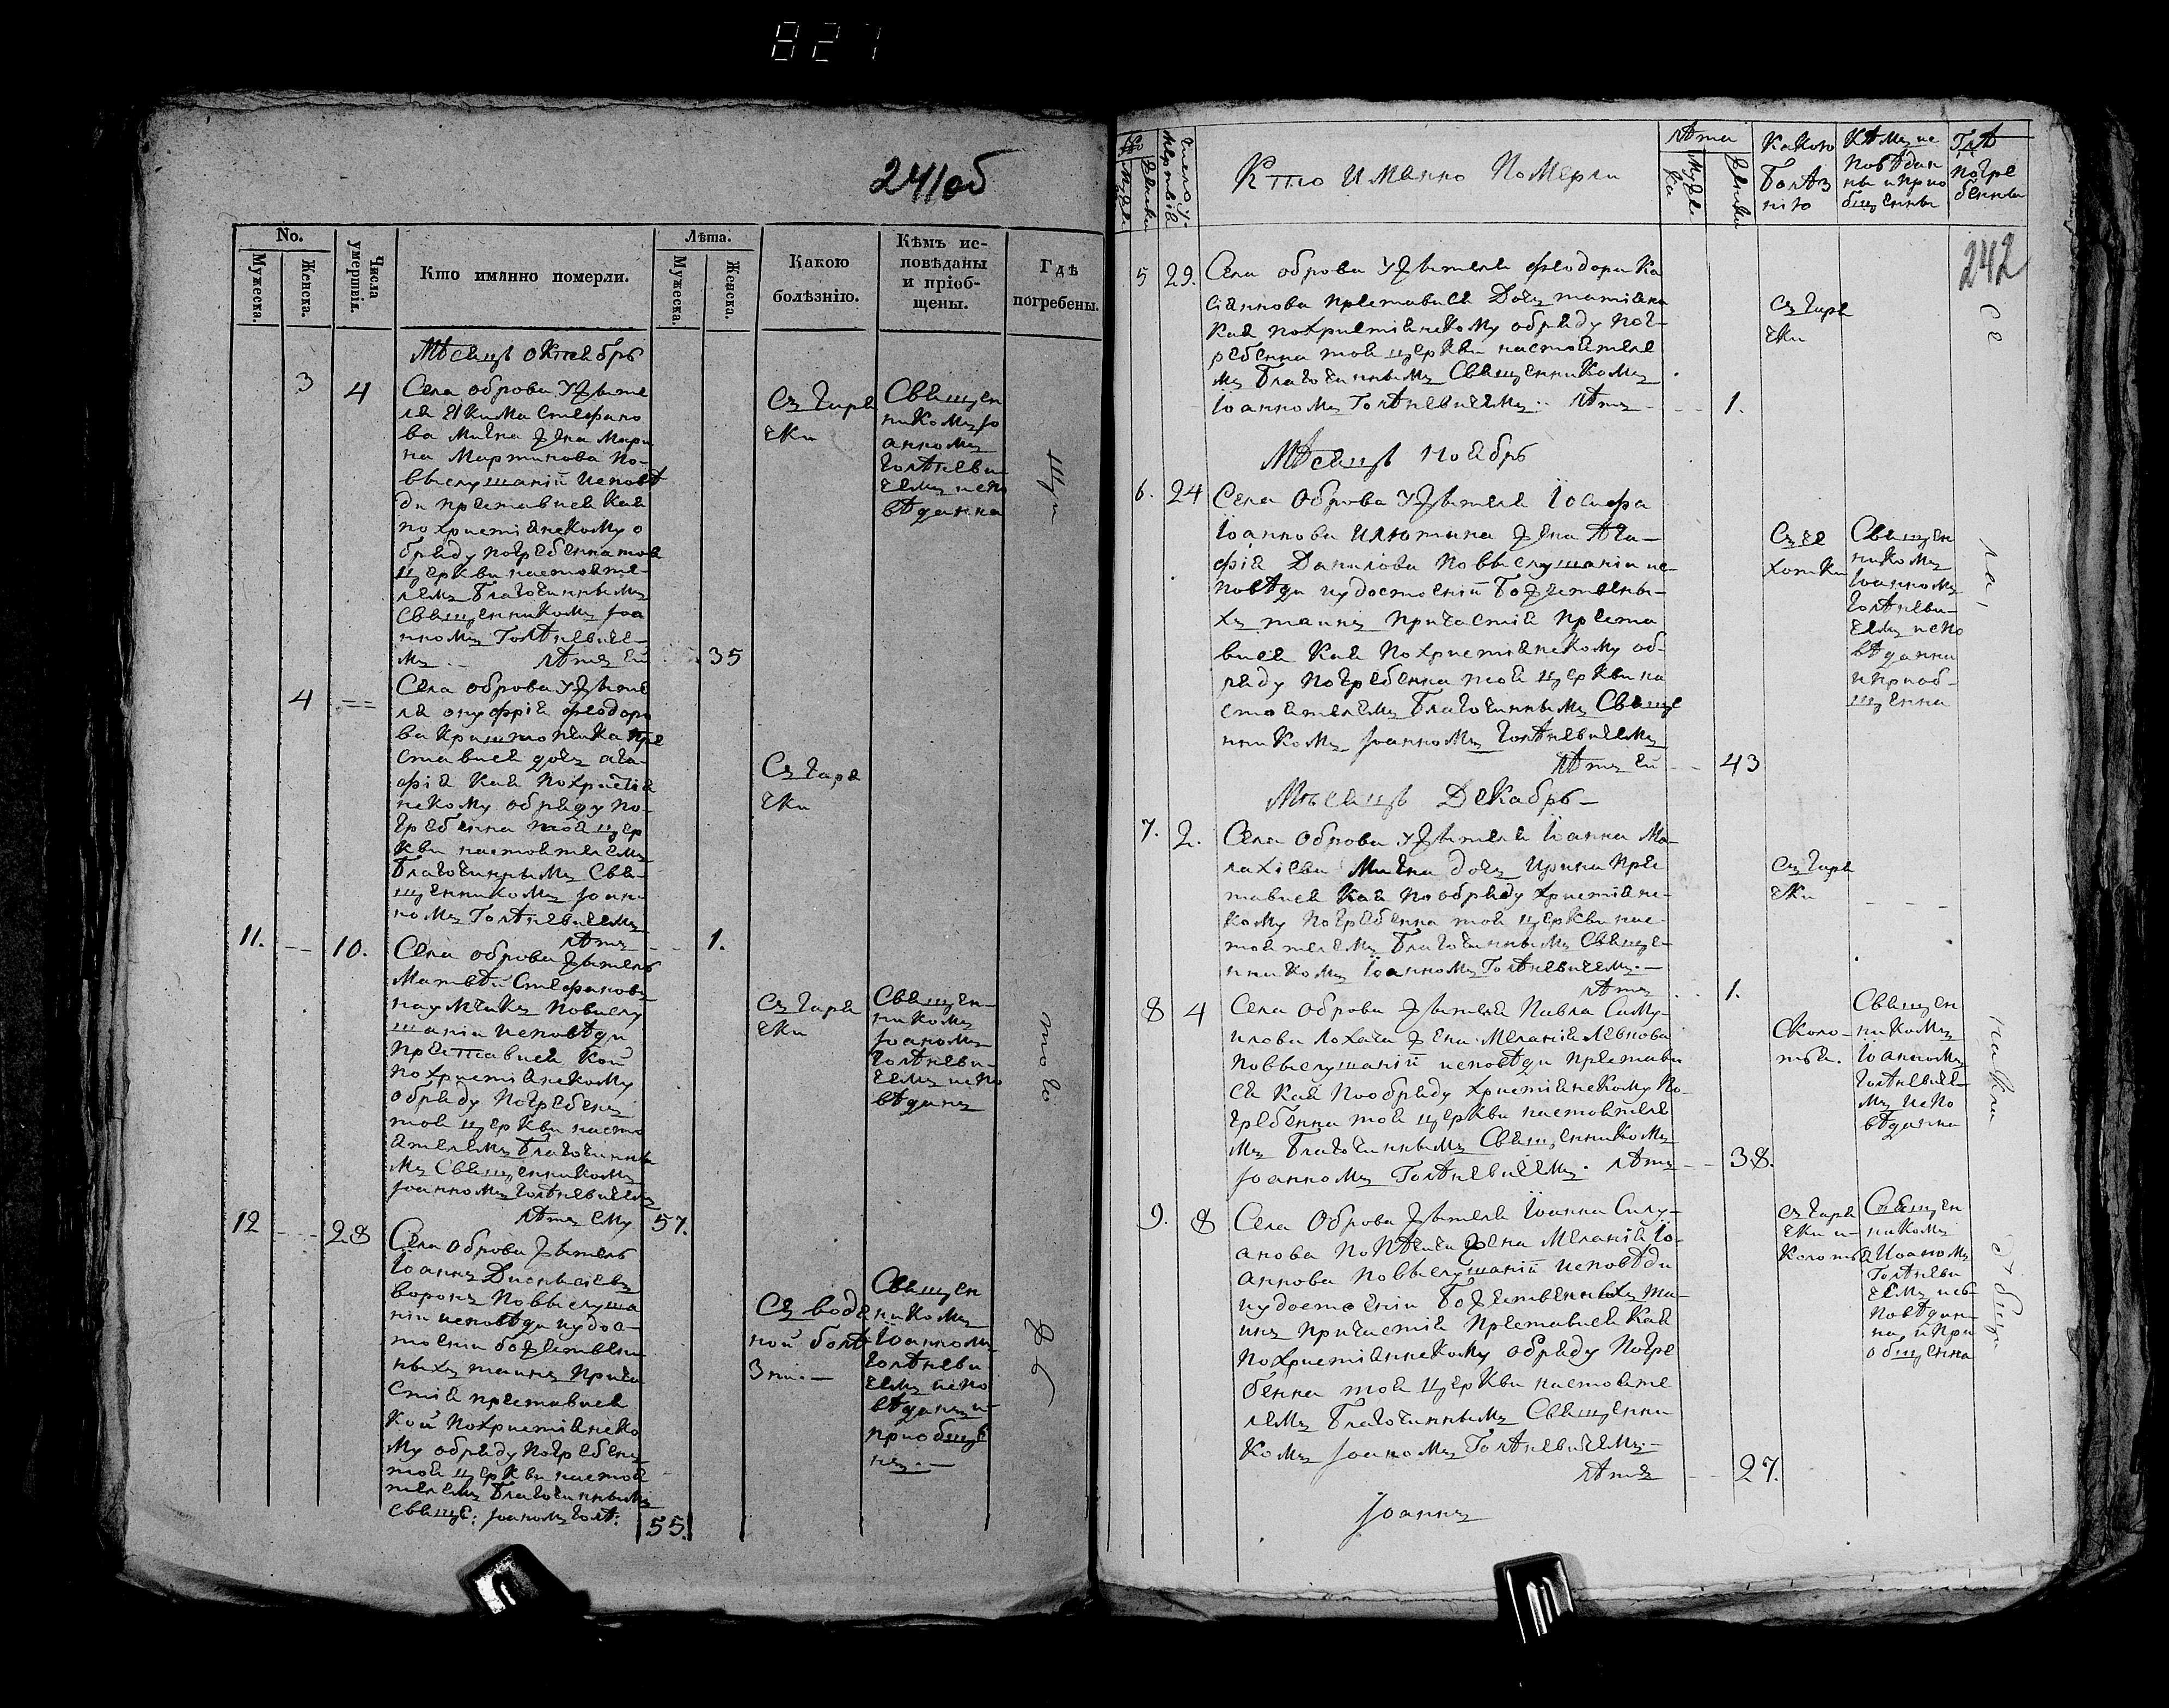 827
241об
No.
Мужеска.
Женска.
Числа умершвія.
Кто имянно померли.
Лѣта.
Мужеска.
Женска.
Какою болѣзнію.
Кѣмъ ис-
повѣданы
и пріоб-
щены.
Гдѣ
погребены.
Мѣсяцъ октябрь
3 4 Села оброва Ужыте
ля Якима Стефано
ва жена Мари
на Мартинова по
выслушаніи исповѣ
ди преставися кая
по христіянскому о
бряду погребенна тоя
церкви настояте-
лемъ благочиннымъ
священникомъ Іоа
нномъ Голѣневиче-
мъ. лѣтъ ей 35
Съ гаря
чки
Священ
никомъ Іо
анномъ
Голѣневи
чемъ испо
вѣданна
4 == Села оброва Ужыте
ля онуфрія феодоро
ва пре
ставися дочъ ага-
фія кая по христія
нскому обряду по-
гребенна тоя цер
кви настоятелемъ
благочиннымъ свя-
щенникомъ Іоан-
номъ Голѣневичемъ
лѣтъ 1.
Съ гаря
чки
11. 10. Села оброва жытель
Матвѣй Стефановъ
по выслу
шаніи исповѣди
преставися кой
по христіянскому
обряду погребенъ
тоя церкви насто
ятелемъ благочинны
мъ священникомъ
Іоанномъ Голѣневичемъ
лѣтъ ему 57.
Съ гаря
чки
Священ-
никомъ
Іоаномъ
Голѣневи-
чемъ испо
вѣданъ
12 28 Села оброва жытель
Іоаннъ Дионысіевъ
воронъ по выслуша
ніи исповѣди и удос-
тоеніи божественн
ныхъ таинъ прича
стія преставися
кой по христіянско
му обряду погребенъ
тоя церкви настоя
телемъ благочиннымъ
свяще: Іоаномъ Голѣ: 55.
Съ водя
ной болѣ
зни.
Священ
никомъ
Іоанномъ
Голѣневи
чемъ испо
вѣданъ и
приобще
нъ.
того
242
Кто именно померли
Лѣта
Какою
болѣз
нію
Кѣмъ ис
повѣдан
ны и прио
бщенны
Гдѣ
погре
бенны
5 29. Села оброва Ужытеля феодора Ка
сіянова преставися дочъ татіяна
кая по христіянскому обряду пог-
ребенна тоя церкви настоятеле
мъ благочиннымъ священникомъ
Іоанномъ Голѣневичемъ. лѣтъ 1.
Съ гаря
чки
Мѣсяцъ ноябрь
6. 24 Села оброва Ужытеля Іосифа
Іоаннова Илютина жена Ага-
фія Данилова по выслушаніи ис-
повѣди и удостоеніи божественны-
хъ таинъ причастія преста
вися кая по христіянскому об-
ряду погребенна тоя церкви на
стоятелемъ благочиннымъ свяще
нникомъ Іоанномъ Голѣневичемъ
лѣтъ ей 43
Съ су
хотки
Священ
никомъ
Іоанномъ
Голѣневи-
чемъ испо
вѣданна
и приоб-
щенна
Мѣсяцъ Декабрь
7. 2. Села оброва Ужытеля Іоанна Ма-
лахіева дочъ Ирина прес
тавися кая по обряду христіянс-
кому погребенна тоя церкви нас-
тоятелемъ благочиннымъ священ-
нникомъ Іоанномъ Голѣневичемъ.
лѣтъ 1.
Съ гаря
чки
8 4 Села оброва жытеля Павла Саму-
илова Лохача жена Меланія Левкова
по выслушаніи исповѣди престави
ся кая по обряду христіянскому по-
гребенна тоя церкви настоятеле
мъ благочиннымъ священникомъ
Іоанномъ Голѣневичемъ. лѣтъ 38.
С коло-
тья.
Священ
никомъ
Іоанномъ
Голѣневиче-
мъ испо
вѣданна
9. 8 Села оброва жытеля Іоанна Силу-
анова жена Меланія Іо-
аннова по выслушаніи исповѣди
и удостоеніи божественныхъ та-
инъ причастія преставися кая
по христіяннскому обряду погре
бенна тоя церкви настояте
лемъ благочиннымъ священни
комъ Іоаномъ Голѣневичемъ
лѣтъ 27.
съ гаря
чки и
колотья
Священ
никомъ
Иоаномъ
Голѣневи
чемъ ис-
повѣдан-
на и при
общенна
Іоаннъ